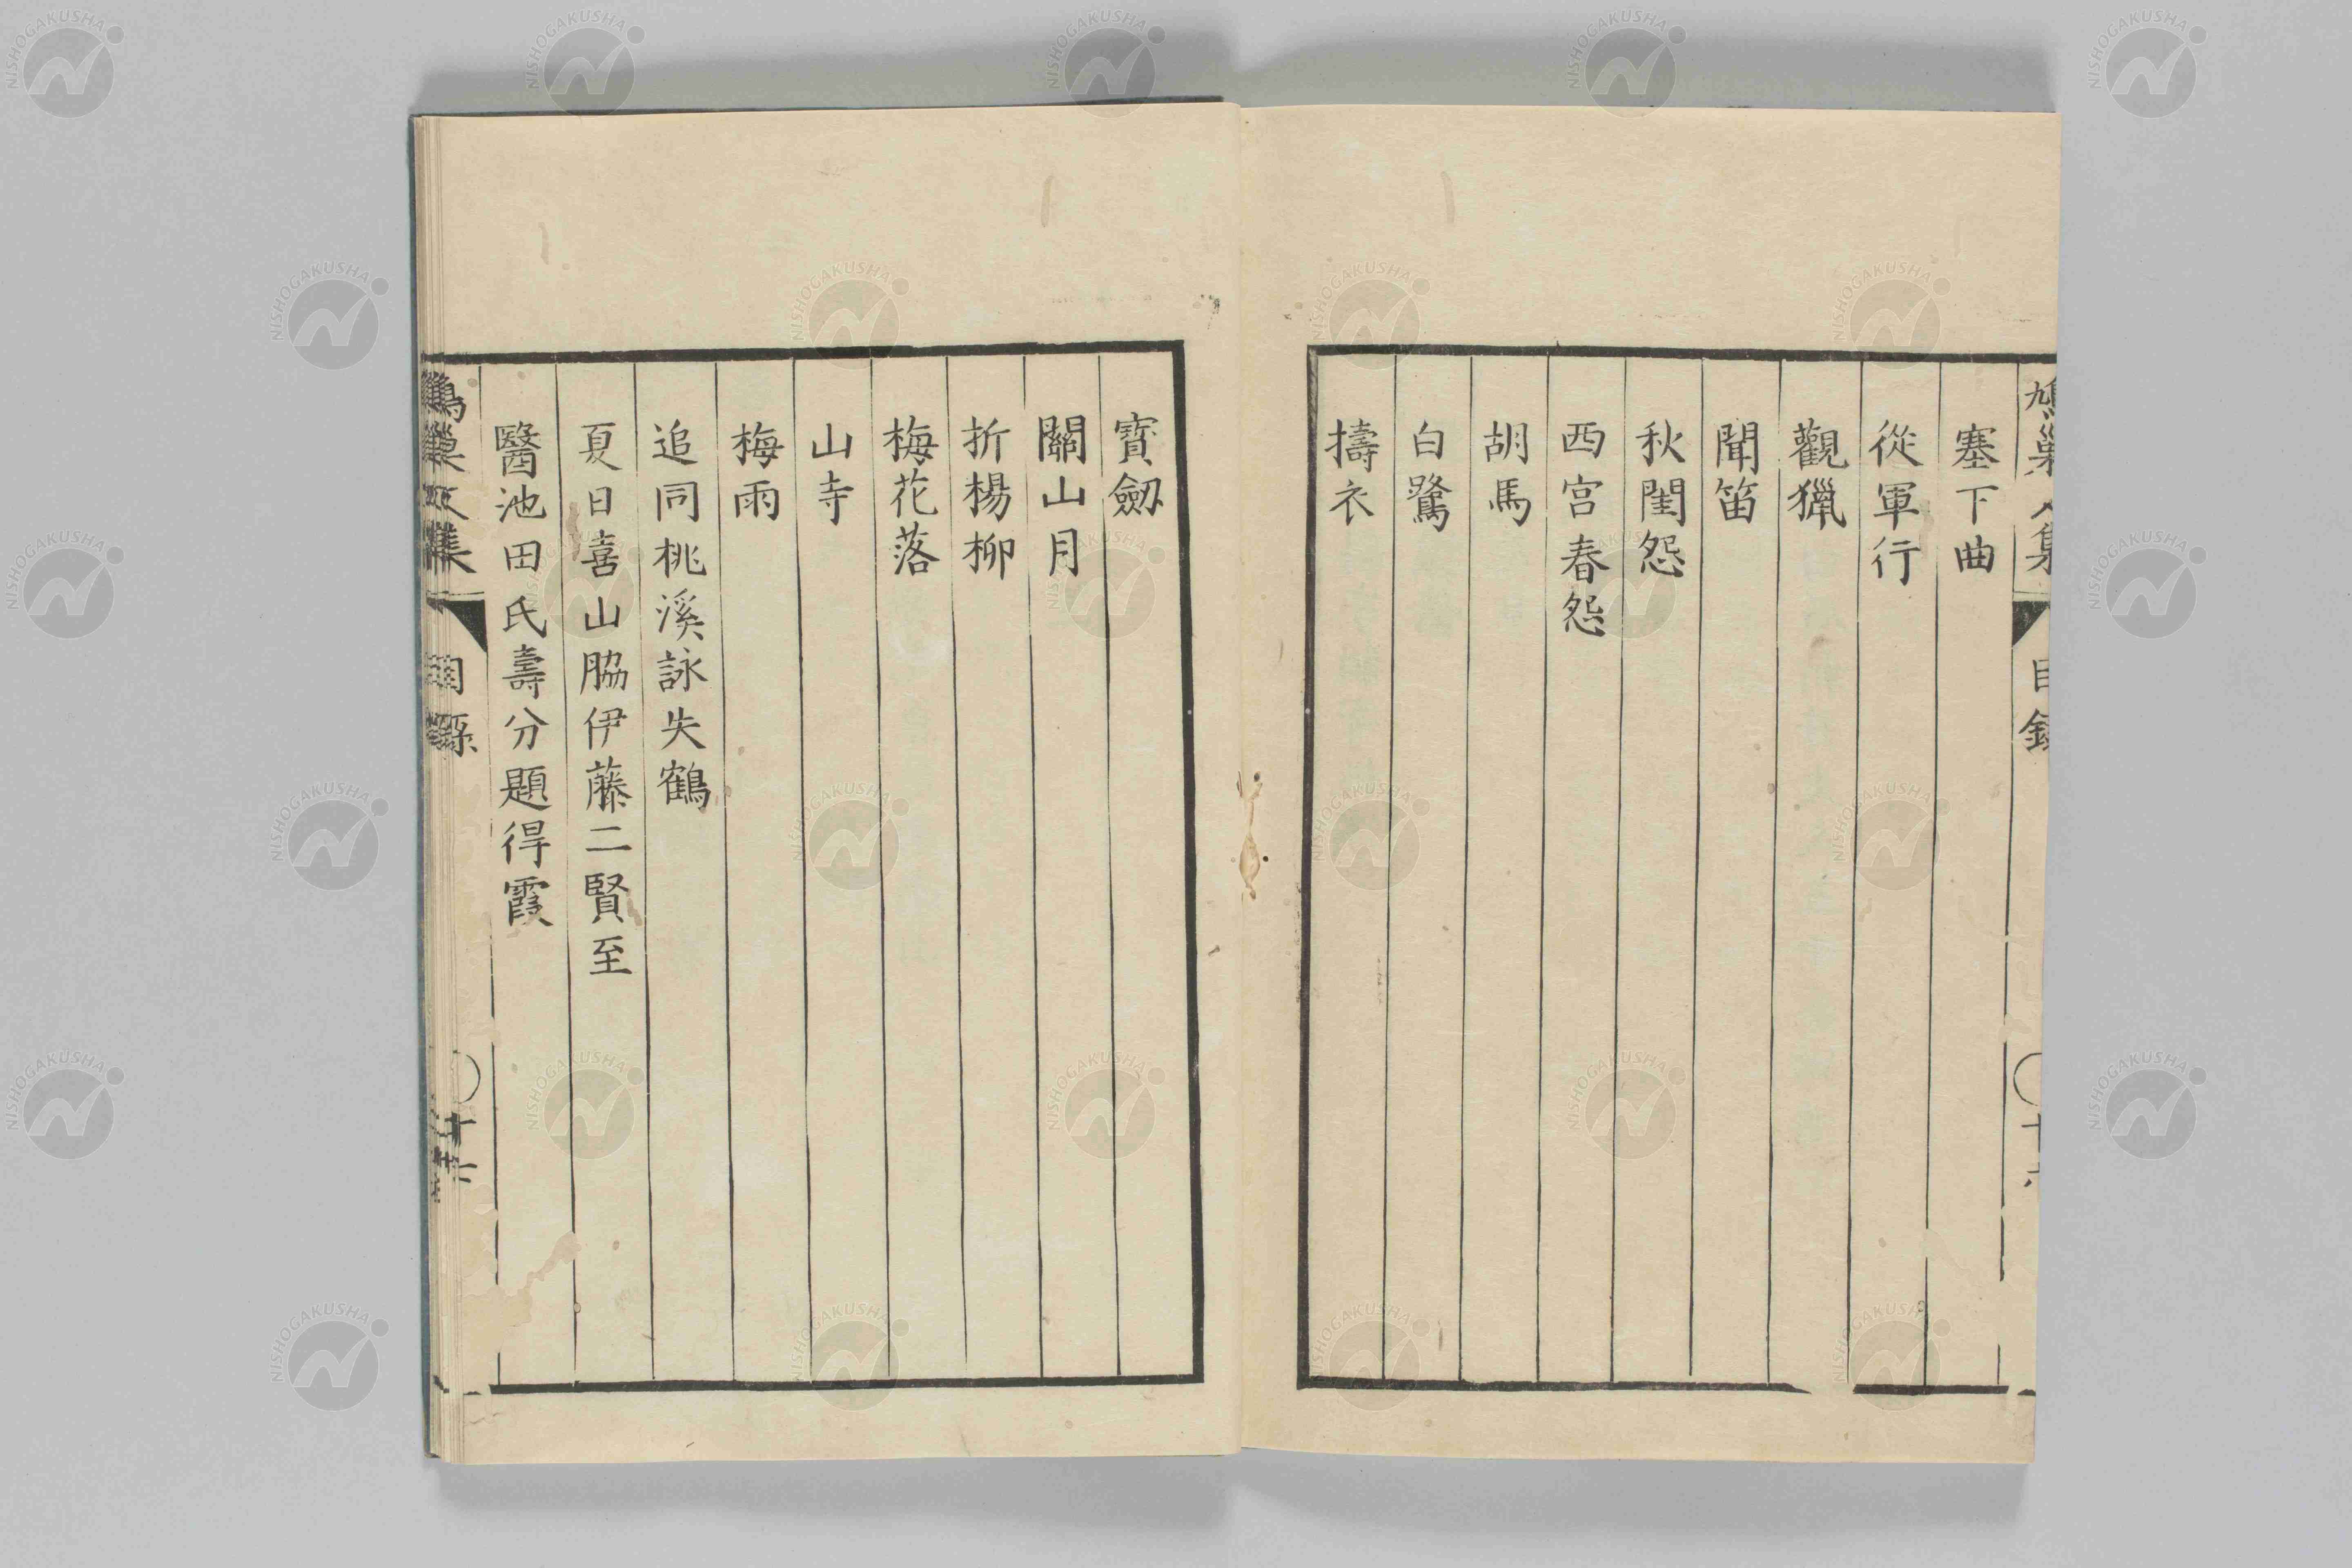 塞下曲
從軍行
觀獵
聞笛
秋閨怨
西宮春怨
胡馬
白鷺
擣衣
寶劒
關山月
折楊柳
梅花落
山寺
梅雨
追同桃溪詠失鶴
夏日喜山脇伊藤二賢至
醫池田氏壽分題得霞
目錄
NISHOGAKUSHA